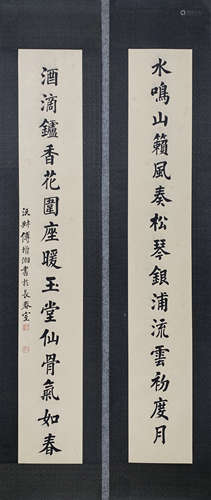 水鳴山籟風奏松琴銀浦流雲初度月
酒滴鑪香花圍座暖玉堂仙骨氣如春
沅叔傅增湘書於長春室